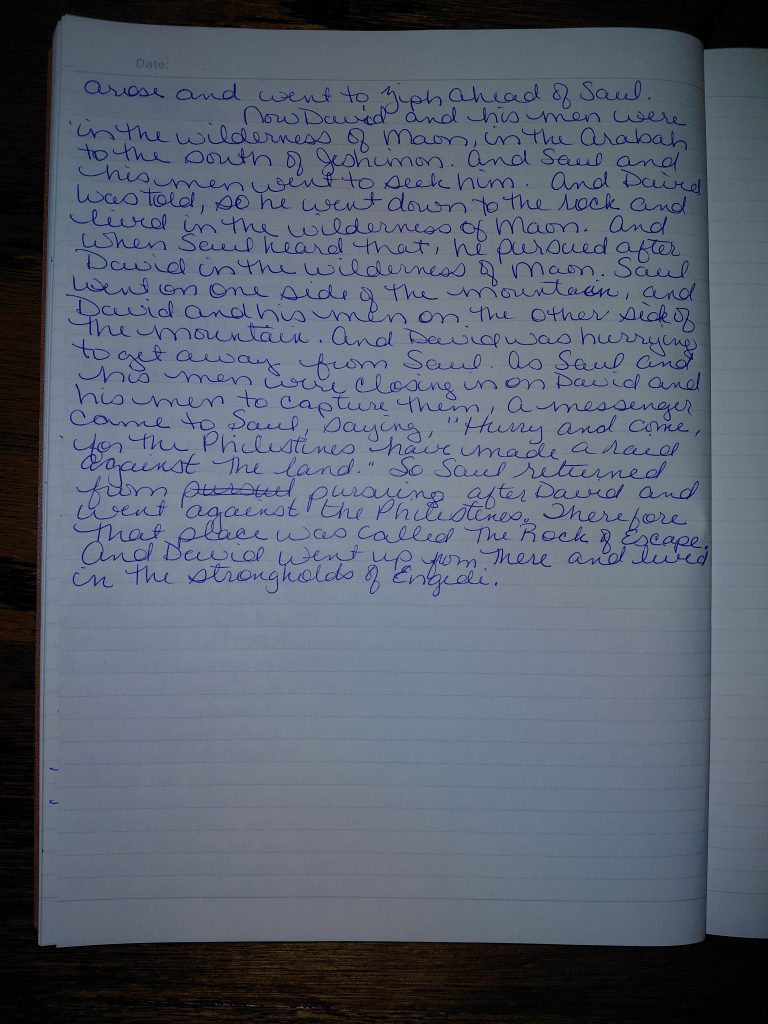 Date:
arose and went to Ziph ahead of Saul.
Now David and his men were
in the wilderness of Maon, in the Arabah
to the south of Jeshimon. And Saul and
his men went to seek him. And David
was told, so he went down to the rock and
lived in the wilderness of Maon. And
when Saul heard that, he pursued after
David in the wilderness of Maon. Saul
went on one side of the mountain, and
David and his men on the other side of
the mountain. And David was hurrying
to get away from Saul. As Saul and
his men were closing in on David and
his men to capture them, a messenger
came to Saul, saying, "Hurry and come,
for the Philistines have made a raid
against the land." So Saul returned
from pursuel pursuing after David and
went against the Philistines. Therefore
that place was called the Rock of Escape.
And David went up from there and lived
in the strongholds of Engedi.